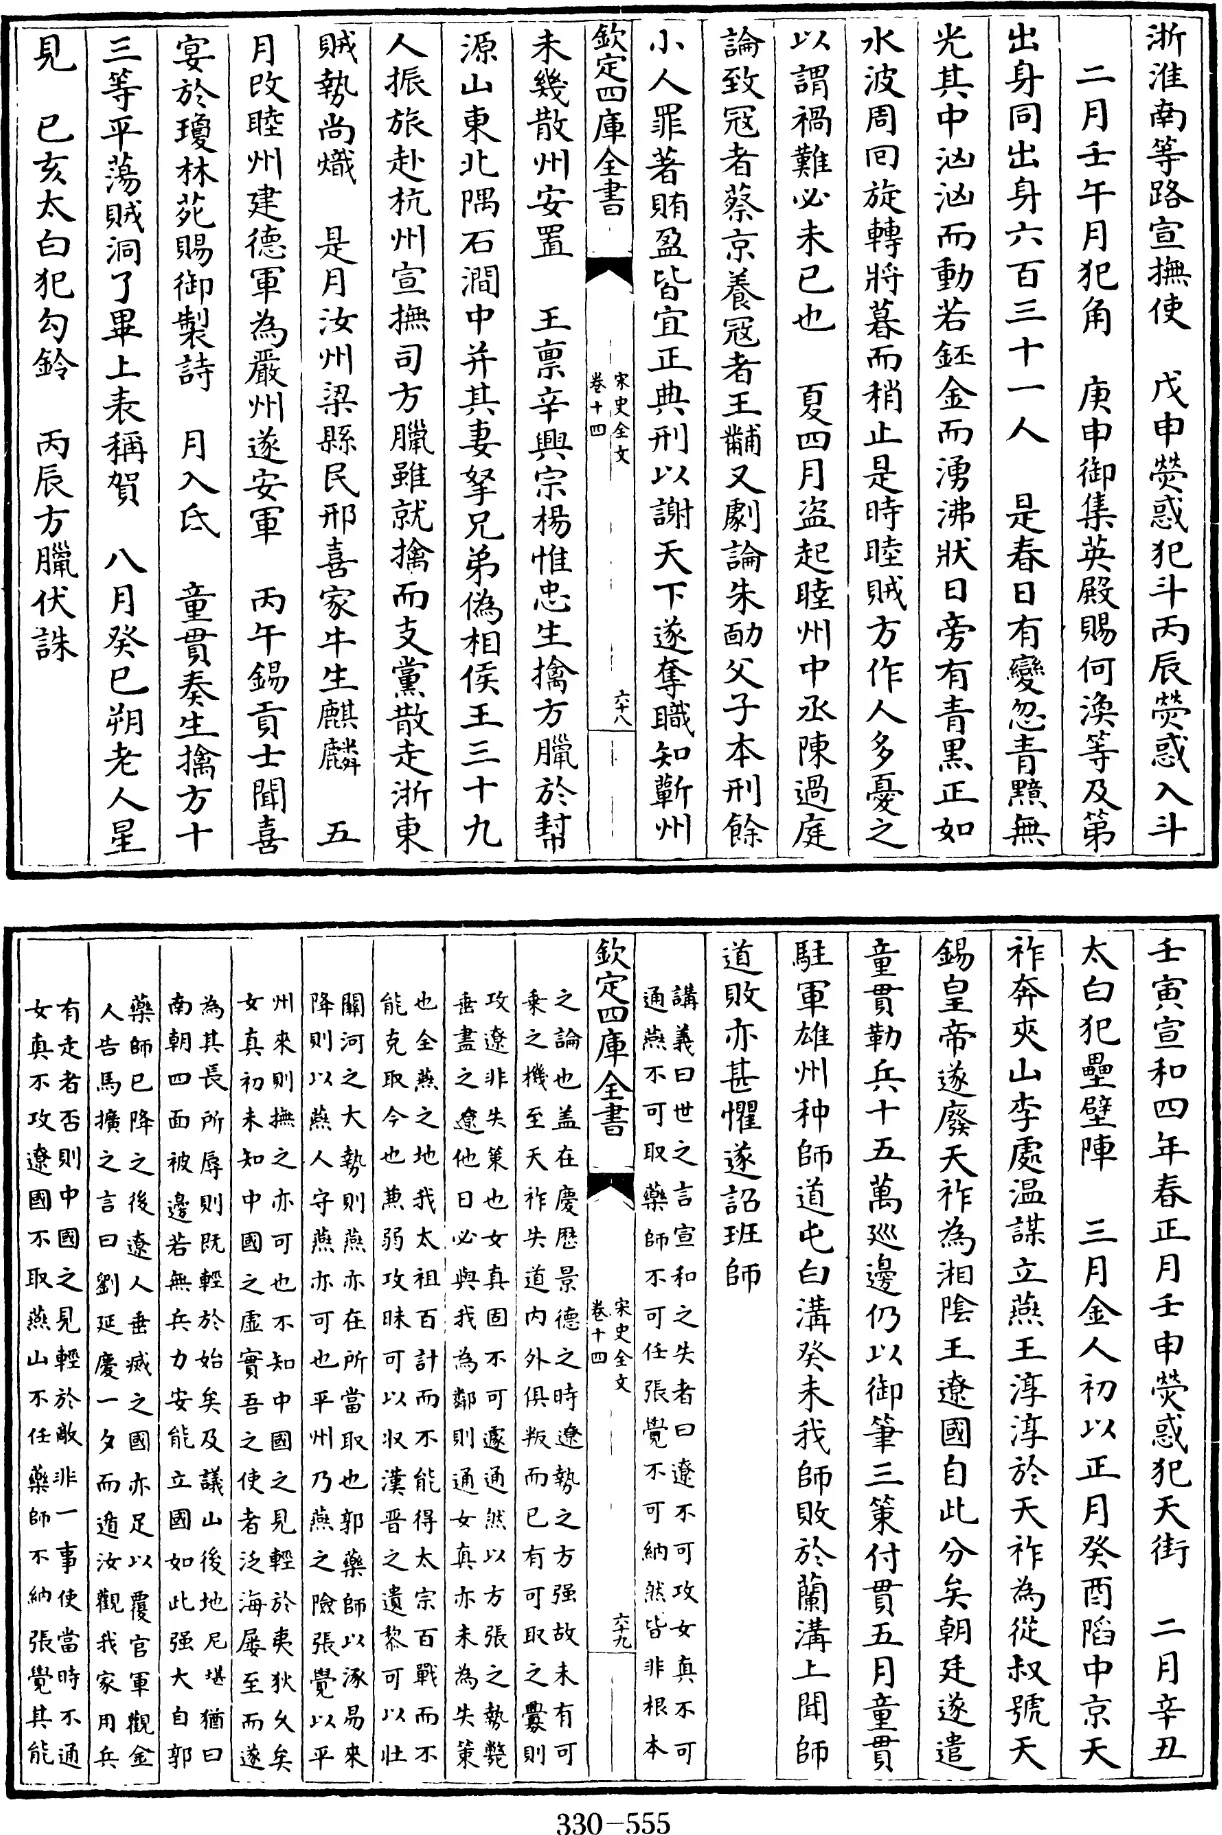 浙淮南等路宣撫使　戊申熒惑犯斗丙辰熒惑入斗
二月壬午月犯角　庚申御集英殿賜何渙等及第
出身同出身六百三十一人　是春日有變忽青黯無
光其中洶洶而動若鉟金而湧沸狀日旁有青黑正如
水波周回旋轉將暮而稍止是時睦賊方作人多憂之
以謂禍難必未已也　夏四月盗起睦州中丞陳過庭
論致冦者蔡京養冦者王黼又劇論朱勔父子本刑餘
小人罪著賄盈皆宜正典刑以謝天下遂奪職知蘄州
欽定四庫全書
宋史全文
卷十四
六十八
未幾散州安置　王禀辛興宗楊惟忠生擒方臘於幇
源山東北隅石澗中并其妻孥兄弟偽相侯王三十九
人振旅赴杭州宣撫司方臘雖就擒而支黨散走浙東
賊勢尚熾　是月汝州梁縣民邢喜家牛生麒麟　五
月改睦州建德軍為嚴州遂安軍　丙午錫貢士聞喜
宴於瓊林苑賜御製詩　月入氐　童貫奏生擒方十
三等平蕩賊洞了畢上表稱賀　八月癸巳朔老人星
見　已亥太白犯勾鈐　丙辰方臘伏誅
壬寅宣和四年春正月壬申熒惑犯天街　二月辛丑
太白犯壘壁陣　三月金人初以正月癸酉䧟中京天
祚奔夾山李處温謀立燕王淳淳於天祚為從叔號天
錫皇帝遂廢天祚為湘隂王遼國自此分矣朝廷遂遣
童貫勒兵十五萬廵邊仍以御筆三策付貫五月童貫
駐軍雄州种師道屯白溝癸未我師敗於蘭溝上聞師
道敗亦甚懼遂詔班師
講義曰世之言宣和之失者曰遼不可攻女真不可
通燕不可取藥師不可任張覺不可納然皆非根本
欽定四庫全書
宋史全文
卷十四
六十九
之論也盖在慶歷景德之時遼勢之方强故未有可
乘之機至天祚失道内外俱叛而已有可取之釁則
攻遼非失策也女真固不可遽通然以方張之勢斃
垂盡之遼他日必與我為鄰則通女真亦未為失策
也全燕之地我太祖百計而不能得太宗百戰而不
能克取今也兼弱攻昧可以収漢晋之遺黎可以壮
關河之大勢則燕亦在所當取也郭藥師以涿易來
降則以燕人守燕亦可也平州乃燕之險張覺以平
州來則撫之亦可也不知中國之見輕於夷狄久矣
女真初未知中國之虛實吾之使者泛海屢至而遂
為其長所辱則既輕於始矣及議山後地尼堪猶曰
南朝四面被邊若無兵力安能立國如此强大自郭
藥師已降之後遼人垂㓕之國亦足以覆官軍觀金
人告馬擴之言曰劉延慶一夕而遁汝觀我家用兵
有走者否則中國之見輕於敵非一事使當時不通
女真不攻遼國不取燕山不任藥師不納張覺其能
330-555